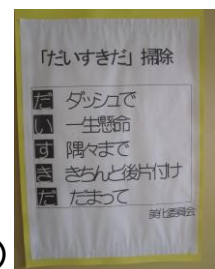 「だいすきだ」掃除
だ ダッシュで
い 一生懸命
す 隅々まで
き きちんと後片付け
だ だまって
美化委員会
)